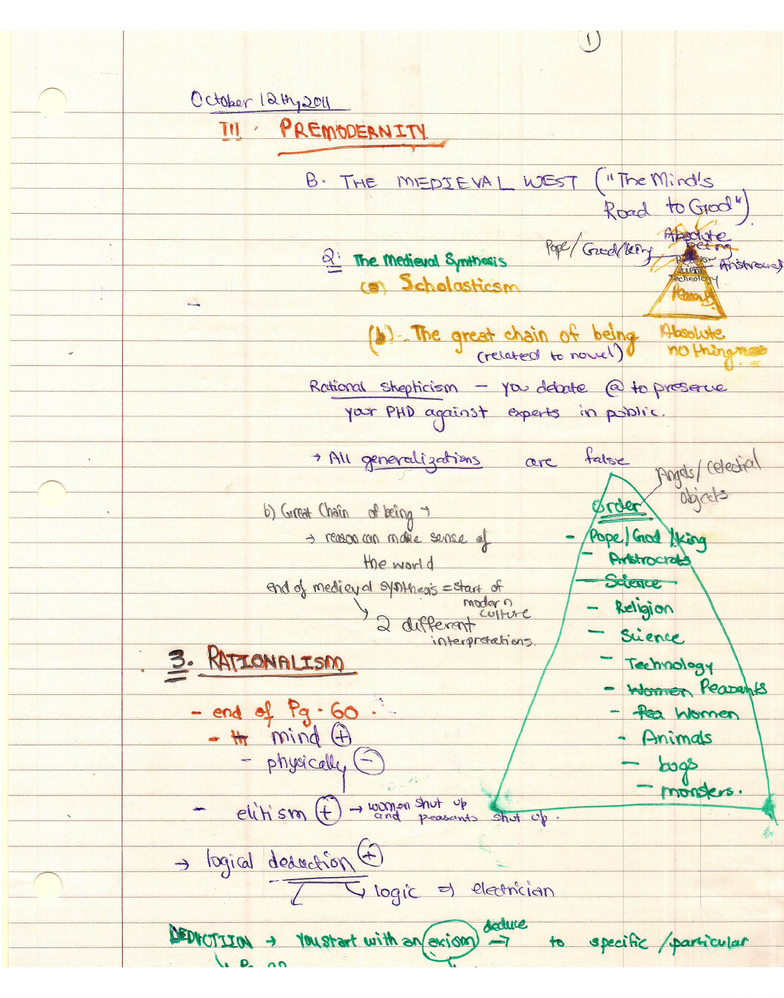 1
October 12th, 2011
III. PREMODERNITY
B. THE MEDIEVAL WEST ("The Mind's
Road to God")
Absolute
Being
Pope/God/king
Aristrocrats
Technology
Peasants
2: The Medieval Synthesis
(a) Scholasticsm
(b). The great chain of being
(related to novel)
Absolute
nothingness
Rational skepticism – you debate @ to preserve
your PHD against experts in public.
→ All generalizations are false
Angels/celestial
objects
b) Great Chain of being →
→ reason can make sense of
the world
end of medieval synthesis = start of
modern
culture
2 different
interpretations.
Order
- Pope/God/king
- Aristrocrats
- Science
- Religion
- Science
- Technology
- Women Peasants
- Pea Women
- Animals
- bugs
- monsters.
3. RATIONALISM
- end of Pg. 60.
- mind +
- physically -
- elitism + → women shut up
and peasants shut up.
→ logical deduction +
↳ logic ⇒ electrician
DEDUCTIION → You start with an axiom deduce → to specific/particular